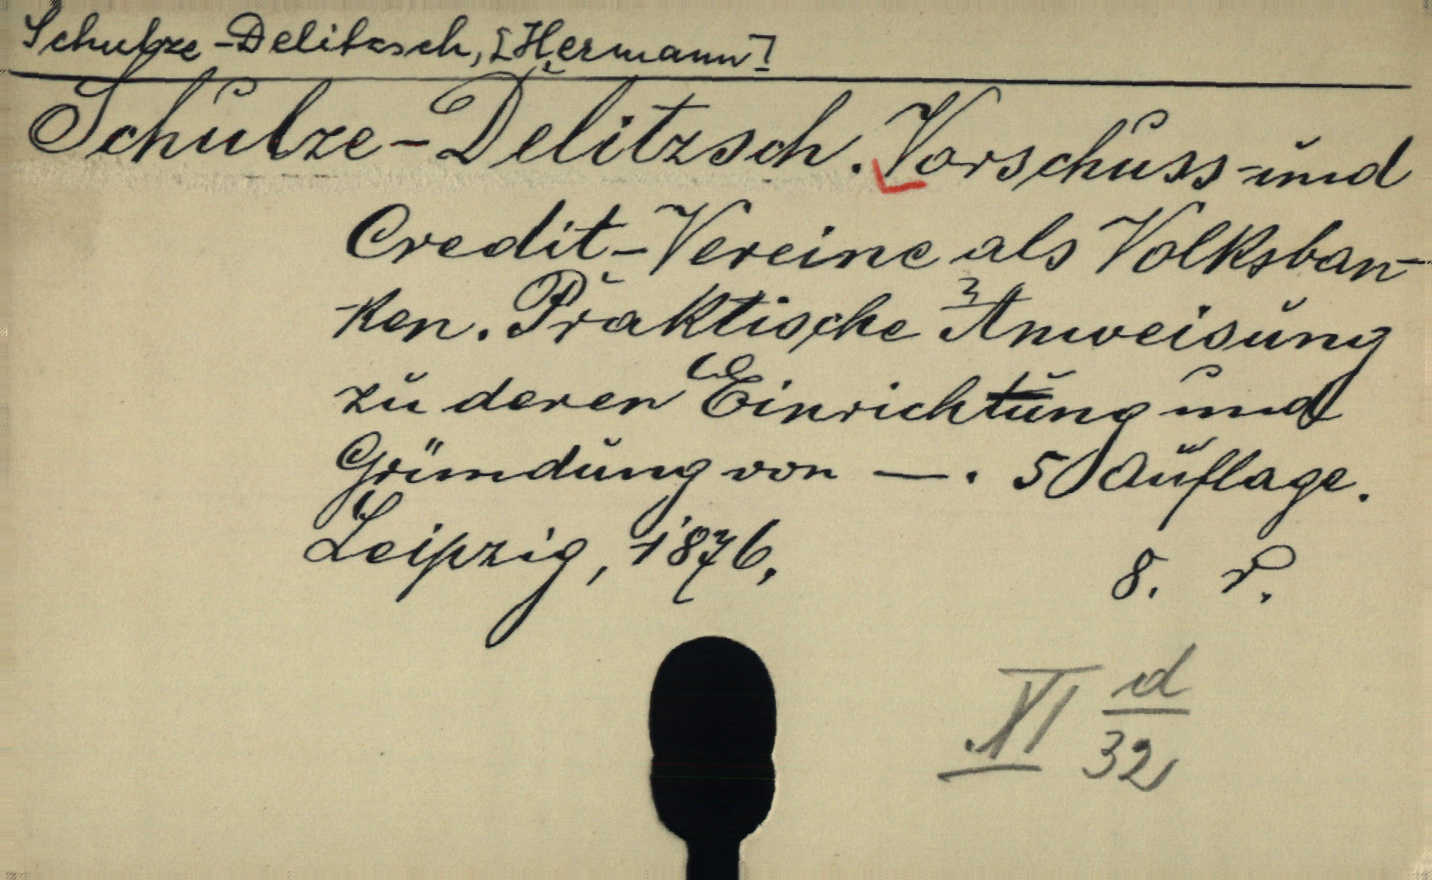 Schulze-Delitzsch, [Hermann]
Schulze-Delitzsch. Vorschuss- und
Credit-Vereine als Volksban-
ken. Praktische Anweisung
zu deren Einrichtung und
Gründung von —. 5 Auflage.
Leipzig, 1876.
8. r.
XI d
32